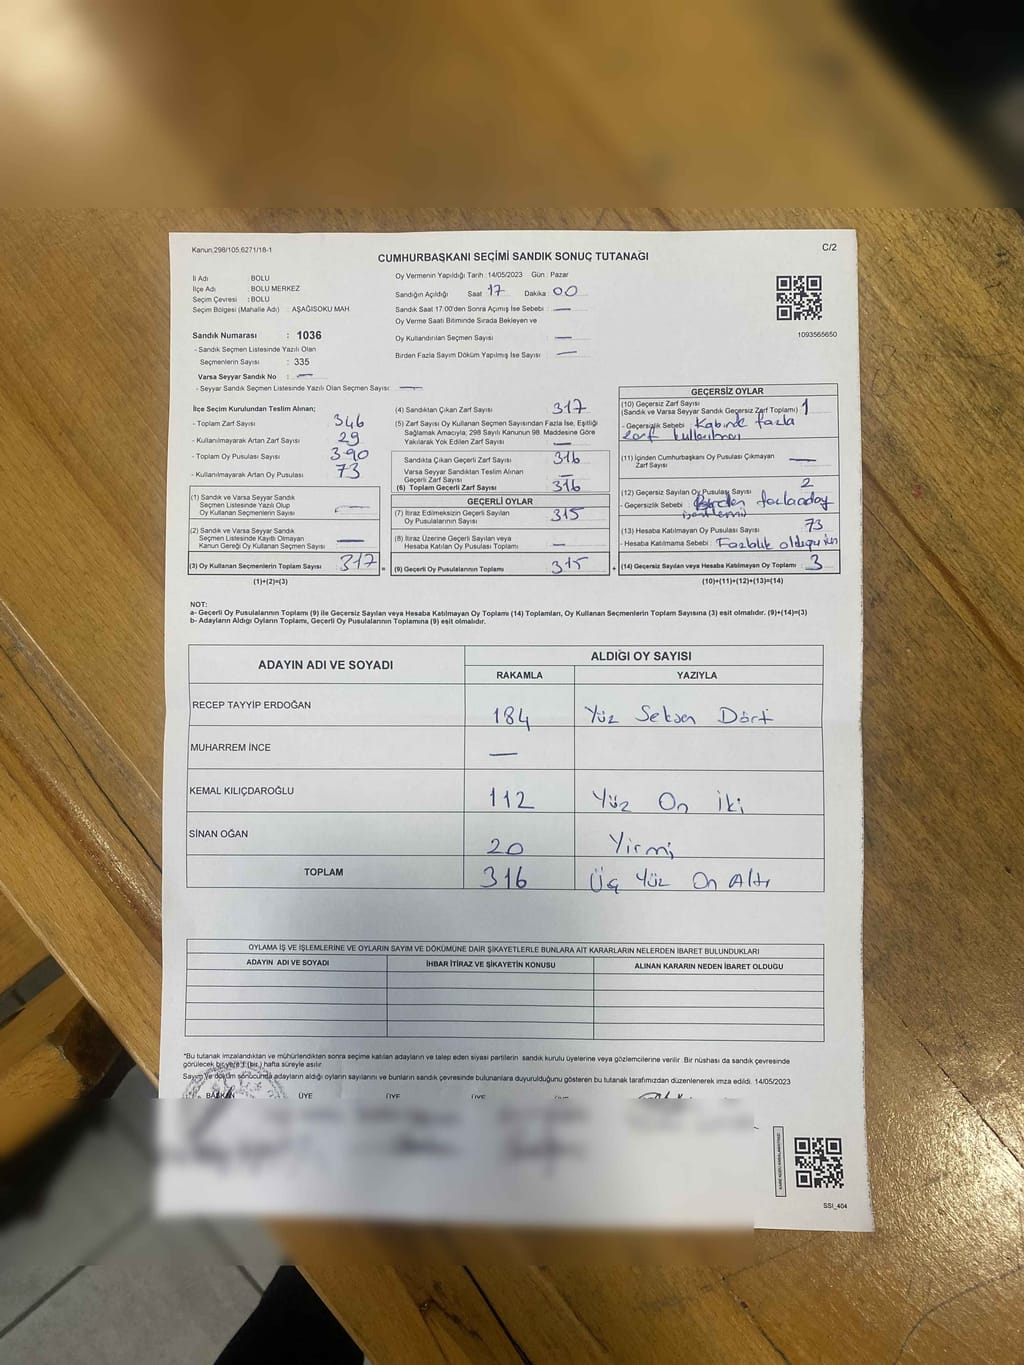 Kanun:298/105,6271/18-1
C/2
CUMHURBAŞKANI SEÇİMİ SANDIK SONUÇ TUTANAĞI
İl Adı : BOLU
İlçe Adı : BOLU MERKEZ
Seçim Çevresi : BOLU
Seçim Bölgesi (Mahalle Adı) : AŞAĞISOKU MAH.
Oy Vermenin Yapıldığı Tarih : 14/05/2023 Gün : Pazar
Sandığın Açıldığı Saat : 17 Dakika : 00
Sandık Saat 17:00'den Sonra Açımış İse Sebebi : —
Oy Verme Saati Bitiminde Sırada Bekleyen ve
Oy Kullandırılan Seçmen Sayısı : —
Birden Fazla Sayım Döküm Yapılmış İse Sayısı : —
1093565650
Sandık Numarası : 1036
- Sandık Seçmen Listesinde Yazılı Olan
Seçmenlerin Sayısı : 335
Varsa Seyyar Sandık No : —
- Seyyar Sandık Seçmen Listesinde Yazılı Olan Seçmen Sayısı: —
İlçe Seçim Kurulundan Teslim Alınan;
- Toplam Zarf Sayısı 346
- Kullanılmayarak Artan Zarf Sayısı 29
- Toplam Oy Pusulası Sayısı 390
- Kullanılmayarak Artan Oy Pusulası 73
(1) Sandık ve Varsa Seyyar Sandık
Seçmen Listesinde Yazılı Olup
Oy Kullanan Seçmenlerin Sayısı —
(2) Sandık ve Varsa Seyyar Sandık
Seçmen Listesinde Kayıtlı Olmayan
Kanun Gereği Oy Kullanan Seçmen Sayısı —
(3) Oy Kullanan Seçmenlerin Toplam Sayısı 317
(1)+(2)=(3)
(4) Sandıktan Çıkan Zarf Sayısı 317
(5) Zarf Sayısı Oy Kullanan Seçmen Sayısından Fazla İse, Eşitliği
Sağlamak Amacıyla, 298 Sayılı Kanunun 98. Maddesine Göre
Yakılarak Yok Edilen Zarf Sayısı —
Sandıkta Çıkan Geçerli Zarf Sayısı 316
Varsa Seyyar Sandıktan Teslim Alınan
Geçerli Zarf Sayısı —
(6) Toplam Geçerli Zarf Sayısı 316
GEÇERLİ OYLAR
(7) İtiraz Edilmeksizin Geçerli Sayılan
Oy Pusulalarının Sayısı 315
(8) İtiraz Üzerine Geçerli Sayılan veya
Hesaba Katılan Oy Pusulası Toplamı —
(9) Geçerli Oy Pusulalarının Toplamı 315
GEÇERSİZ OYLAR
(10) Geçersiz Zarf Sayısı
(Sandık ve Varsa Seyyar Sandık Geçersiz Zarf Toplamı) 1
- Geçersizlik Sebebi : Kabinde fazla
zarf kullanılması
(11) İçinden Cumhurbaşkanı Oy Pusulası Çıkmayan
Zarf Sayısı —
(12) Geçersiz Sayılan Oy Pusulası Sayısı 2
- Geçersizlik Sebebi :
(13) Hesaba Katılmayan Oy Pusulası Sayısı 73
- Hesaba Katılmama Sebebi : Fazlalık olduğundan
(14) Geçersiz Sayılan veya Hesaba Katılmayan Oy Toplamı 3
(10)+(11)+(12)+(13)=(14)
NOT:
a- Geçerli Oy Pusulalarının Toplamı (9) ile Geçersiz Sayılan veya Hesaba Katılmayan Oy Toplamı (14) Toplamları, Oy Kullanan Seçmenlerin Toplam Sayısına (3) eşit olmalıdır. (9)+(14)=(3)
b- Adayların Aldığı Oyların Toplamı, Geçerli Oy Pusulalarının Toplamına (9) eşit olmalıdır.
ADAYIN ADI VE SOYADI ALDIĞI OY SAYISI
RAKAMLA YAZIYLA
RECEP TAYYİP ERDOĞAN 184 Yüz Seksen Dört
MUHARREM İNCE —
KEMAL KILIÇDAROĞLU 112 Yüz On İki
SİNAN OĞAN 20 Yirmi
TOPLAM 316 Üç Yüz On Altı
OYLAMA İŞ VE İŞLEMLERİNE VE OYLARIN SAYIM VE DÖKÜMÜNE DAİR ŞİKAYETLERLE BUNLARA AİT KARARLARIN NELERDEN İBARET BULUNDUKLARI
ADAYIN ADI VE SOYADI İHBAR İTİRAZ VE ŞİKAYETİN KONUSU ALINAN KARARIN NEDEN İBARET OLDUĞU
*Bu tutanak imzalandıktan ve mühürlendikten sonra seçime katılan adayların ve talep eden siyasi partilerin sandık kurulu üyelerine veya gözlemcilerine verilir. Bir nüshası da sandık çevresinde
görülecek bir yere 1 (bir) hafta süreyle asılır.
Sayım ve döküm sonucunda adayların aldığı oyların sayılarını ve bunların sandık çevresinde bulunanlara duyurulduğunu gösteren bu tutanak tarafımızdan düzenlenerek imza edildi. 14/05/2023
BAŞKAN ÜYE ÜYE ÜYE
SSI_404